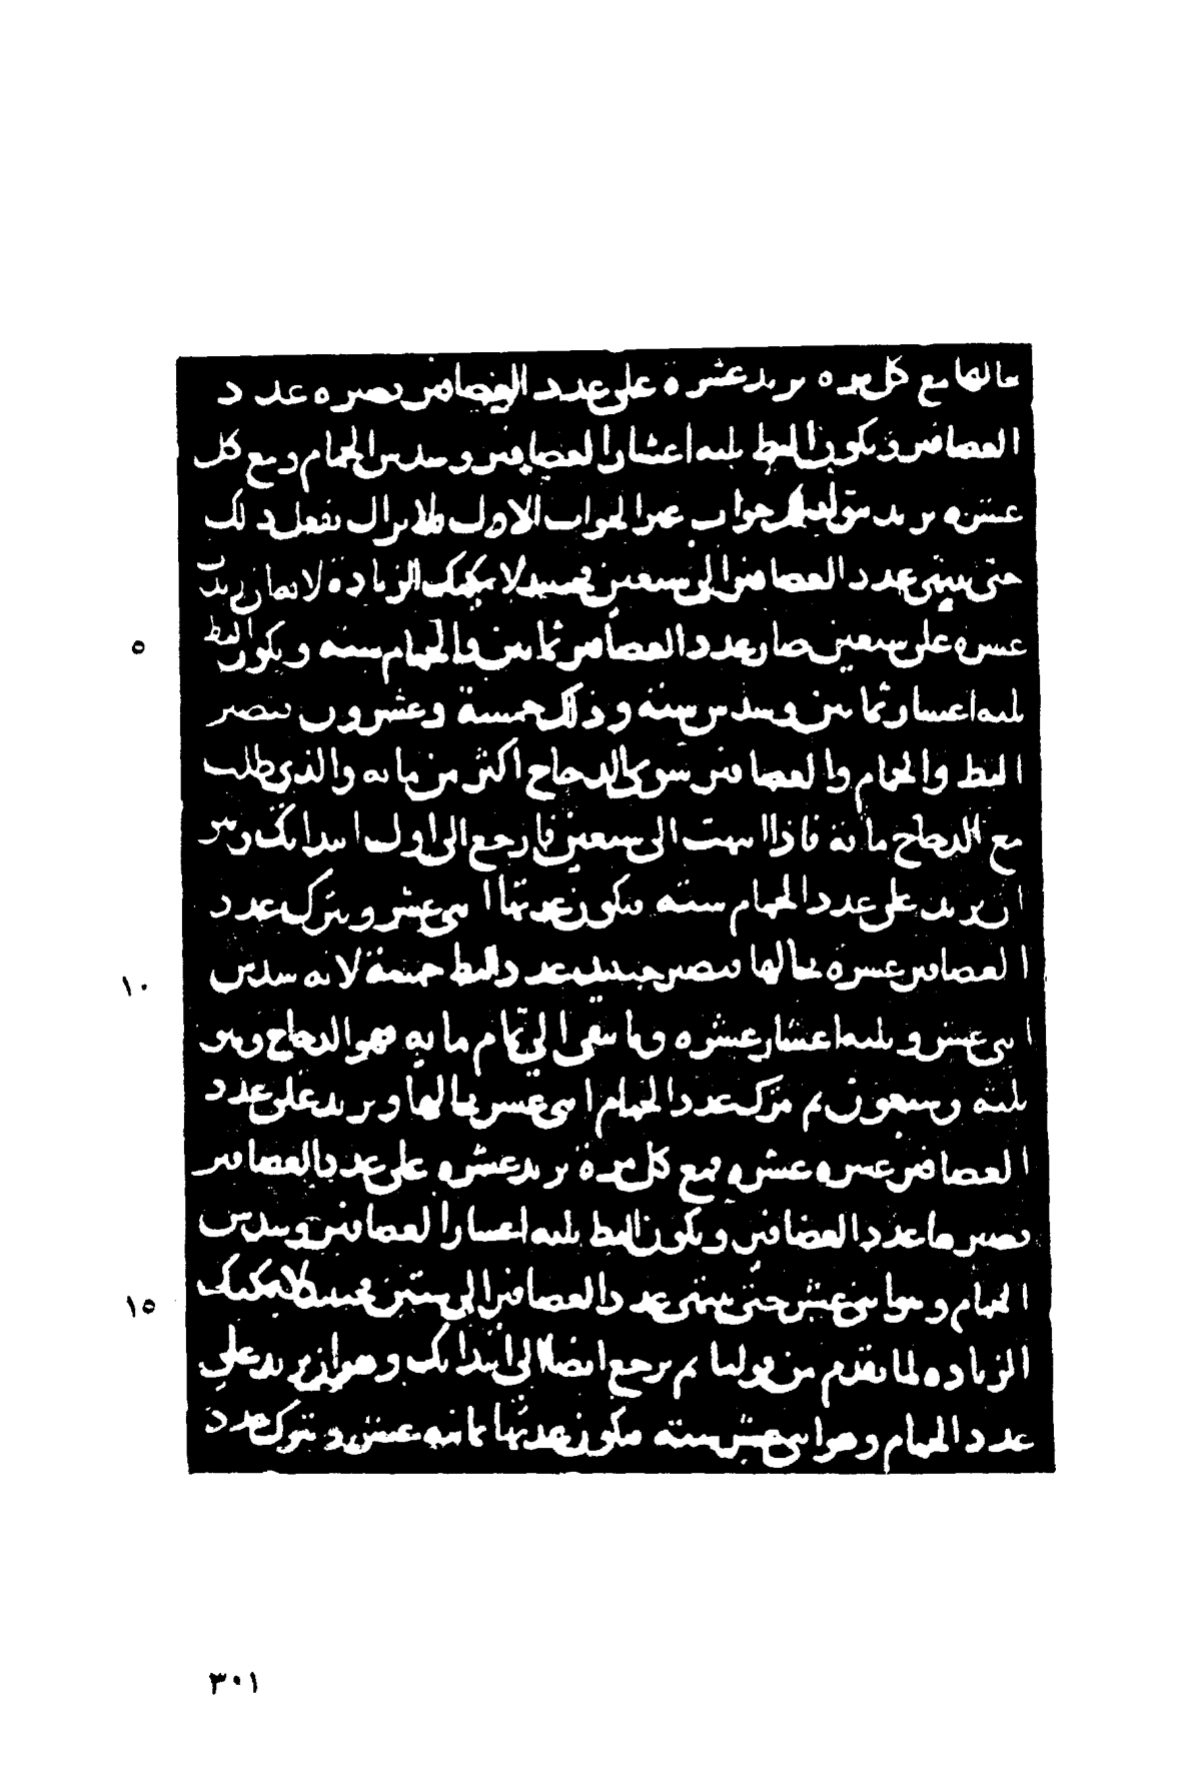 حالها مع كل مره تزيد عشره على عدد العصافير تصيره عدد
العصافير ويكون البط ثلثه اعشار العصافير وسدس الحمام ومع كل
عشره تزيد يتولد جواب غير الجواب الاول ولا تزال تفعل ذلك
حتى ينتهى عدد العصافير الى سبعين فحينيذ لا يمكنك الزياده لانها ان زيدت
٥
عشره على سبعين صار عدد العصافير ثمانين والحمام سته ويكون البط
ثلثه اعشار ثمانين وسدس سته وذلك خمسة وعشرون فتصير
البط والحمام والعصافير سوى الدجاج اكثر من مايه والذى طلب
مع الدجاج مايه فاذا انتهت الى سبعين فارجع الى اول ابتدايك وهو
ان تزيد على عدد الحمام سته فتكون عدتها اثنى عشر وتترك عدد
١٠
العصافير عشره بحالها فتصير حينيذ عدد البط خمسة لانه سدس
اثنى عشر وثلثه اعشار عشره وما تبقى الى تمام مايه فهو الدجاج وهو
ثلثه وسبعون ثم تترك عدد الحمام اثنى عشر بحالها وتزيد على عدد
العصافير عشره عشره فمع كل مرة تزيد عشره على عدد العصافير
تصيرها عدد العصافير ويكون البط ثلثه اعشار العصافير وسدس
١٥
الحمام وهو اثنى عشر حتى ينتهى عدد العصافير الى ستين فحينيذ لا يمكنك
الزياده لما تقدم من قولنا ثم ترجع ايضا الى ابتدايك وهو ان تزيد على
عدد الحمام وهو اثنى عشر سته فتكون عدتها ثمانيه عشر وتترك عدد
٣٠١